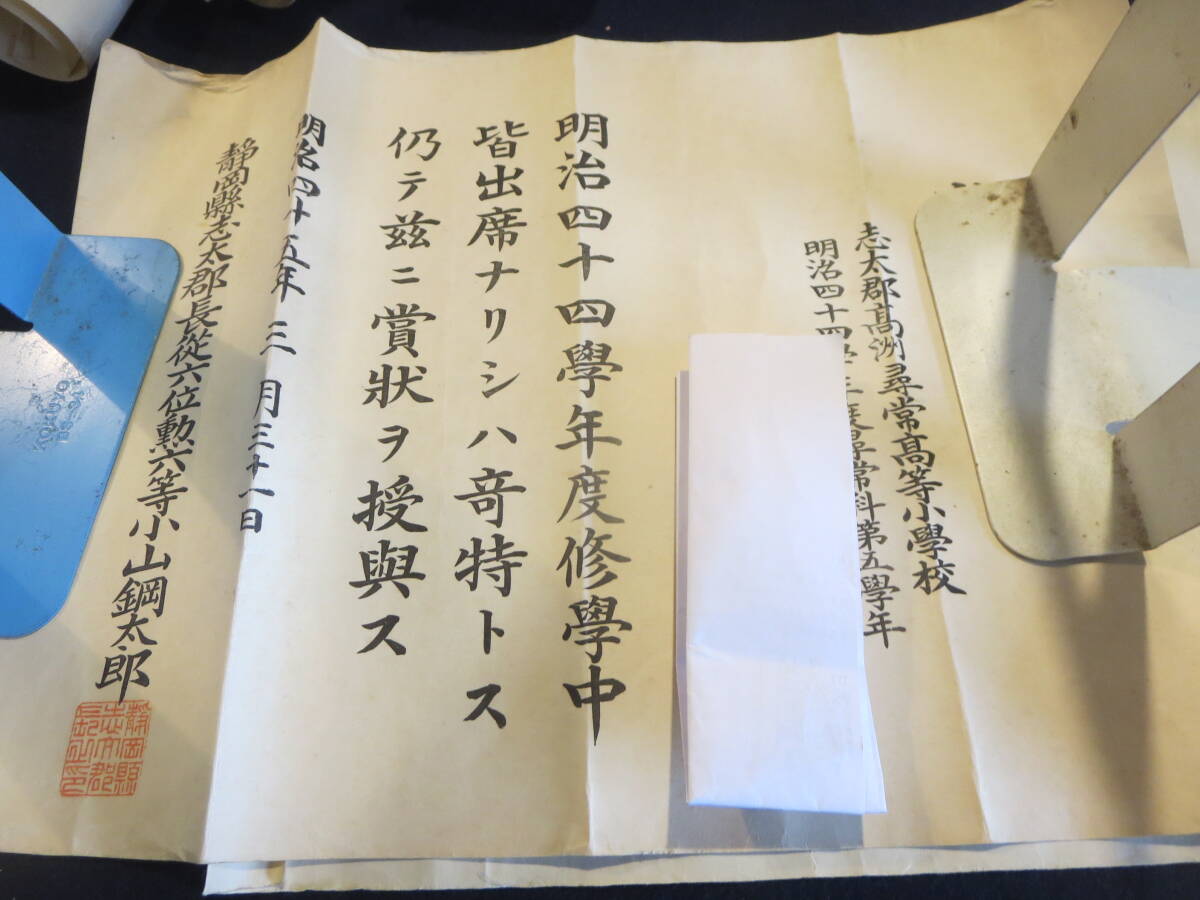 志太郡高洲尋常高等小學校
明治四十四學年度尋常科第五學年
明治四十四學年度修學中
皆出席ナリシハ竒特トス
仍テ茲ニ賞狀ヲ授與ス
明治四十五年三月三十一日
靜岡縣志太郡長從六位勲六等小山鋼太郎
靜岡縣
志太郡
長之印
KOKUYO